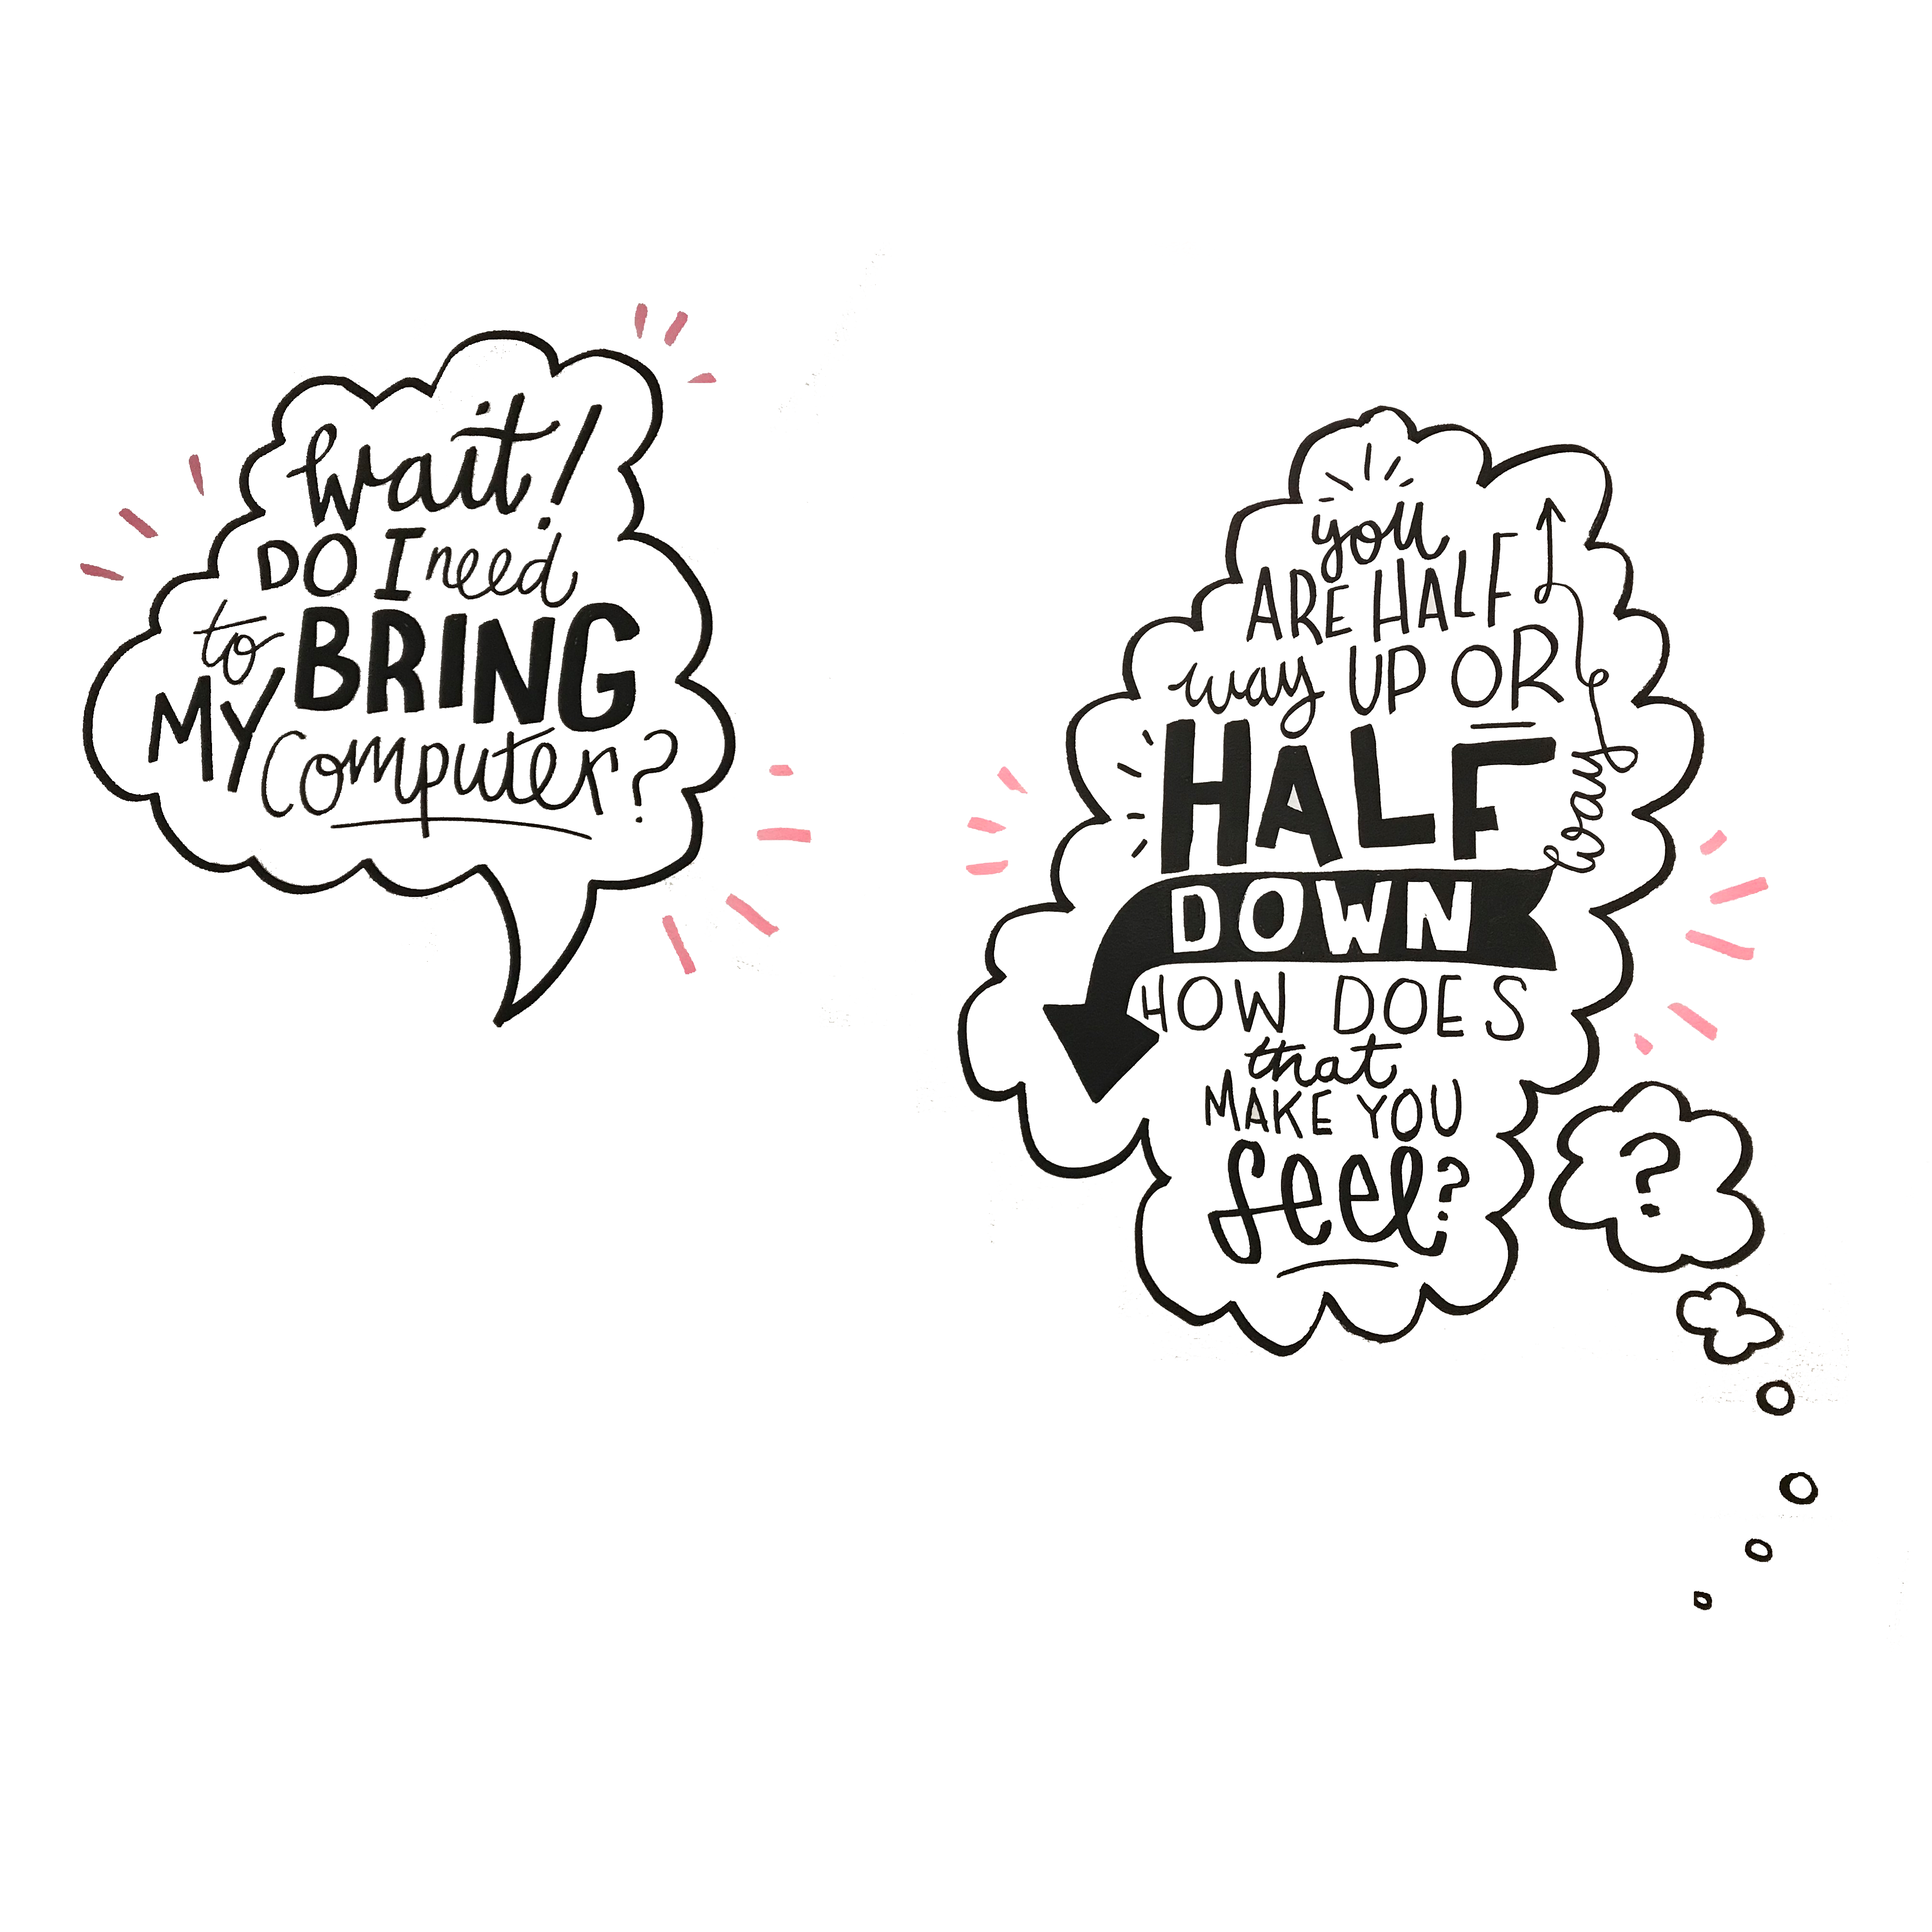 Wait!
DO I need
to BRING
MY computer?
you
ARE HALF
way UP OR
HALF
way
DOWN
HOW DOES
that
MAKE YOU
feel?
?